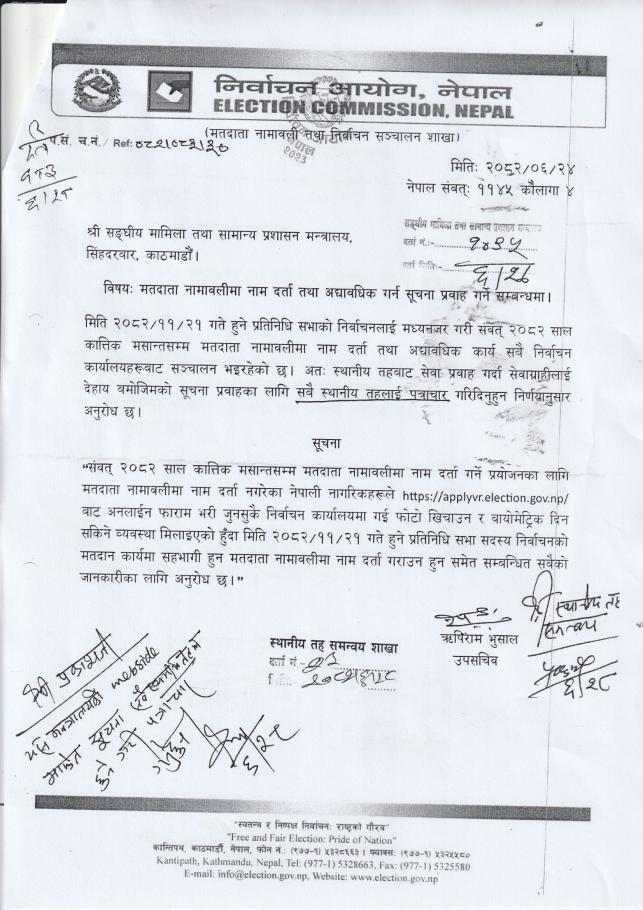 निर्वाचन आयोग, नेपाल
ELECTION COMMISSION, NEPAL
(मतदाता नामावली तथा निर्वाचन सञ्चालन शाखा)
प.सं. च.नं./ Ref:
मितिः २०८२/०६/२४
नेपाल संवत्: ११४५ कौलागा ४
श्री सङ्घीय मामिला तथा सामान्य प्रशासन मन्त्रालय,
सिंहदरवार, काठमाडौं।
सङ्घीय मामिला तथा सामान्य प्रशासन मन्त्रालय
दर्ता नं.:- १०९५
दर्ता मितिः- ६/२८
विषयः मतदाता नामावलीमा नाम दर्ता तथा अद्यावधिक गर्न सूचना प्रवाह गर्ने सम्बन्धमा।
मिति २०८२/११/२१ गते हुने प्रतिनिधि सभाको निर्वाचनलाई मध्यनजर गरी संवत् २०८२ साल
कात्तिक मसान्तसम्म मतदाता नामावलीमा नाम दर्ता तथा अद्यावधिक कार्य सबै निर्वाचन
कार्यालयहरूबाट सञ्चालन भइरहेको छ। अतः स्थानीय तहबाट सेवा प्रवाह गर्दा सेवाग्राहीलाई
देहाय बमोजिमको सूचना प्रवाहका लागि सबै स्थानीय तहलाई पत्राचार गरिदिनुहुन निर्णयानुसार
अनुरोध छ।
सूचना
"संवत् २०८२ साल कात्तिक मसान्तसम्म मतदाता नामावलीमा नाम दर्ता गर्ने प्रयोजनका लागि
मतदाता नामावलीमा नाम दर्ता नगरेका नेपाली नागरिकहरूले https://applyvr.election.gov.np/
बाट अनलाईन फाराम भरी जुनसुकै निर्वाचन कार्यालयमा गई फोटो खिचाउन र बायोमेट्रिक दिन
सकिने व्यवस्था मिलाइएको हुँदा मिति २०८२/११/२१ गते हुने प्रतिनिधि सभा सदस्य निर्वाचनको
मतदान कार्यमा सहभागी हुन मतदाता नामावलीमा नाम दर्ता गराउन हुन समेत सम्बन्धित सबैको
जानकारीका लागि अनुरोध छ।"
श्री स्थानीय तह
समन्वय
६/२८
ऋषिराम भुसाल
उपसचिव
स्थानीय तह समन्वय शाखा
दर्ता नं -
श्री प्रकाशन
सूचना
"स्वतन्त्र र निष्पक्ष निर्वाचनः राष्ट्रको गौरव"
"Free and Fair Election: Pride of Nation"
कान्तिपथ, काठमाडौं, नेपाल, फोन नं.: (९७७-१) ५३२८६६३ । फ्याक्सः (९७७-१) ५३२५५८०
Kantipath, Kathmandu, Nepal, Tel: (977-1) 5328663, Fax: (977-1) 5325580
E-mail: info@election.gov.np, Website: www.election.gov.np